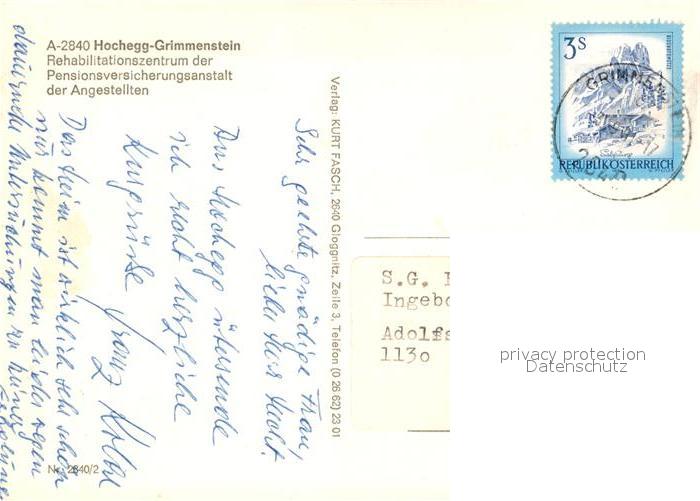 A-2840 Hochegg-Grimmenstein
Rehabilitationszentrum der
Pensionsversicherungsanstalt
der Angestellten
Sehr geehrte gnädige Frau!
lieber Herr
Aus Hochegg übersende
ich recht herzliche
Kurgrüsse Franz
Das Heim ist wirklich sehr schön
nur kommt man leider wegen
dauernder Untersuchungen zu keiner
Nr. 2840/2
Verlag: KURT FASCH, 2640 Gloggnitz, Zeile 3, Telefon (0 26 62) 23 01
3S
REPUBLIK ÖSTERREICH
GRIMMEN
S.G.
Ingebo
Adolfs
1130
privacy protection
Datenschutz